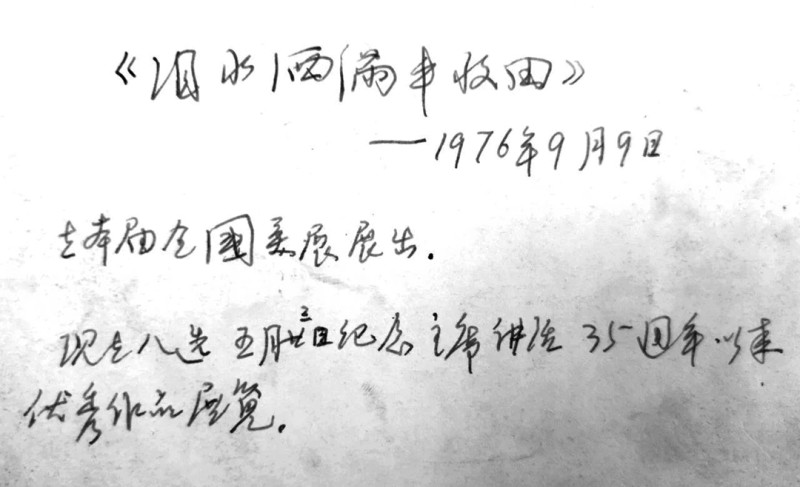 《泪水洒满丰收田》
——1976年9月9日
在本届全國美展展出.
现在入选 五月廿三日纪念主席讲话 35週年以来
优秀作品展览.